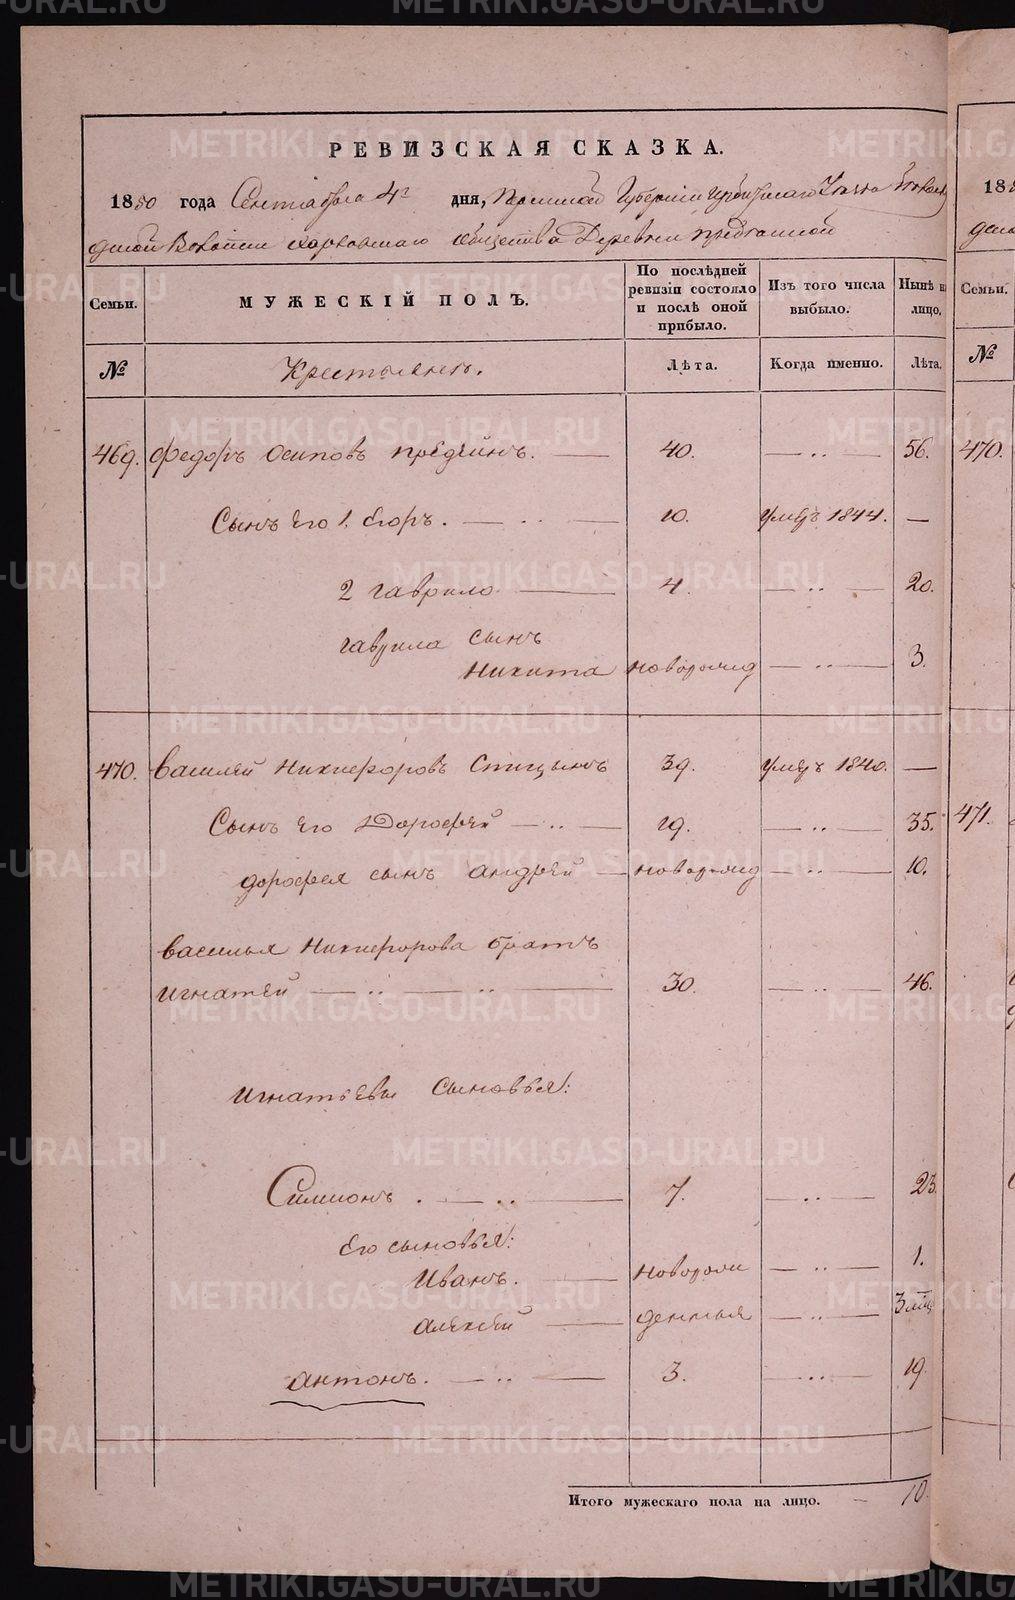 РЕВИЗСКАЯ СКАЗКА.
1850 года Сентября 4го дня, Пермской Губернии Ирбитскаго Уезда
Волости общества Деревни
Семьи.
МУЖЕСКІЙ ПОЛЪ.
По послѣдней ревизіи состояло и послѣ оной прибыло.
Изъ того числа выбыло.
Нынѣ на лицо.
№
Крестьяне.
Лѣта.
Когда именно.
Лѣта.
469. Федоръ Осиповъ Предеинъ. 40. 56.
Сынъ его 1. Егоръ. 10. умеръ 1844.
2 гаврило 4. 20.
гаврила сынъ
Никита новорожд 3.
470. Василей Никифоровъ Спицынъ 39. умеръ 1840.
Сынъ его Дорофей 19. 35.
дорофея сынъ андрей новорожд 10.
василья Никифорова братъ
игнатей 30. 46.
игнатьевы сыновья:
Симионъ. 7. 23.
Его сыновья:
Иванъ. новорож 1.
алексей денныя 3 мѣц
антонъ. 3. 19.
Итого мужескаго пола на лицо. 10.
Семьи.
№
470.
471.
METRIKI.GASO-URAL.RU